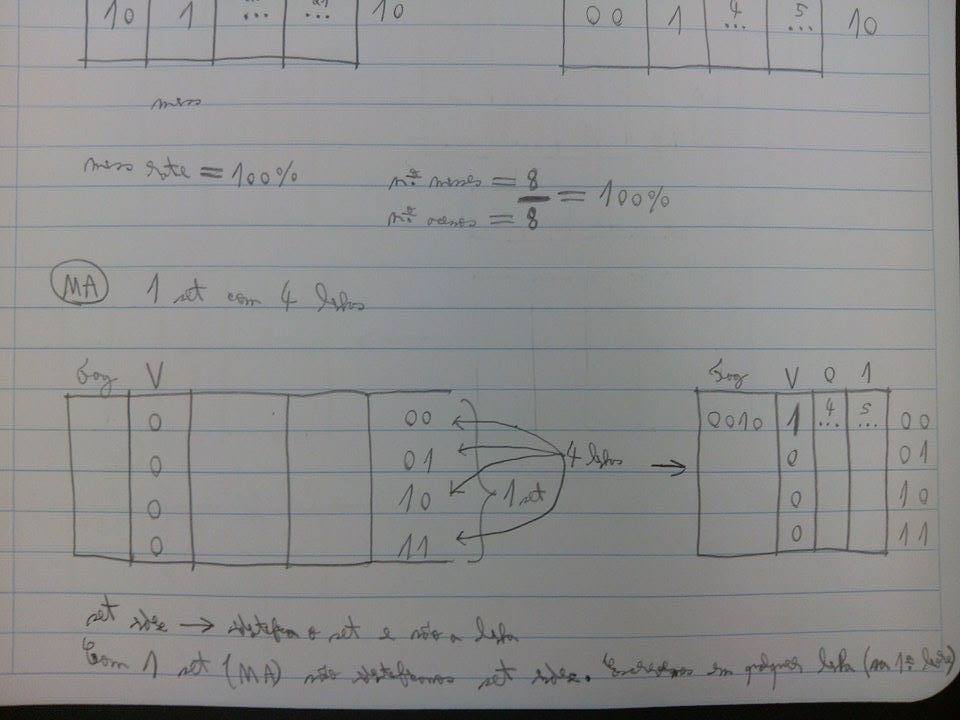 10 1 ... ... 10 00 1 4... 5... 10
miss
miss rate = 100%
nº misses = 8
nº acessos = 8
= 100%
MA 1 set com 4 linhas
Tag V
0 00
0 01
0 10
0 11
4 linhas
1 set
Tag V 0 1
0010 1 4... 5... 00
0 01
0 10
0 11
set index → identifica o set e não a linha
Com 1 set (MA) não identificamos set index. Escrevemos em qualquer linha (na 1ª livre)